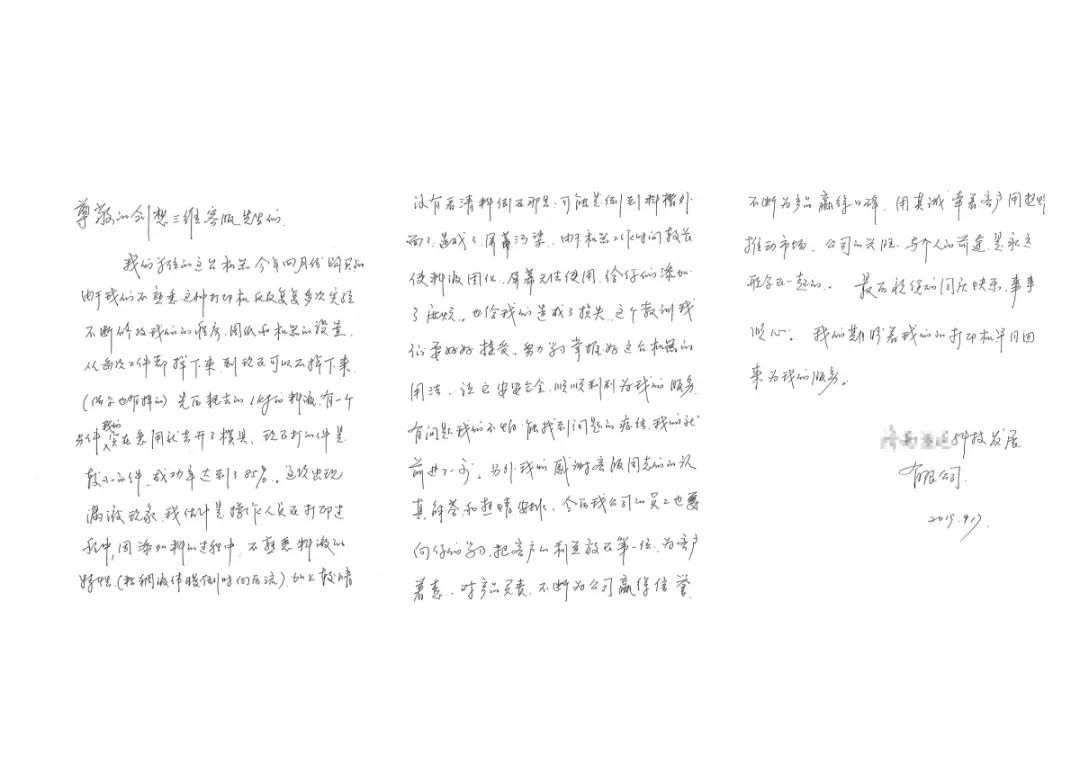 尊敬的创想三维客服先生们
我们单位的这台机器今年四月份购买的
由于我们不熟悉这种打印机反反复复多次实验
不断修改我们的程序、图纸和机器的设置、
从每次工件都掉下来、到现在可以不掉下来、
(偶尔也有掉的)先后耗去的1kg的料液、有一个
另件我们人员在急用就去开了模具、现在打的件是
较小的件、成功率达到了85%。这次出现
漏液现象、我估计是操作人员在打印过
程中,因添加料的过程中、不熟悉料液的
特性、(粘稠液体慢倒时向后流)、加上较暗
没有看清料倒在那里、可能是倒到料槽外
面了、造成了屏幕污染、由于机器工作时间较长
使料液固化、屏幕无法使用、给你们添加
了麻烦。也给我们造成了损失、这个教训我
们要好好接受、努力学习掌握好这台机器的
用法、让它安安全全、顺顺利利为我们服务
有问题我们不怕、能找到问题的症结、我们就
前进了一步、另外我们感谢客服同志们的认
真解答和热情安排、今后我公司的员工也要
向你们学习、把客户的利益放在第一位、为客户
着想、对产品负责、不断为公司赢得信誉、
不断为产品赢得口碑、用真诚牵着客户用起来
推动市场、公司的兴旺、与个人的前途是永远
联合在一起的。最后祝你们国庆快乐、事事
顺心。我们期盼着我们的打印机早日回
来为我们服务。
科技发展
有限公司
2019.9.17.